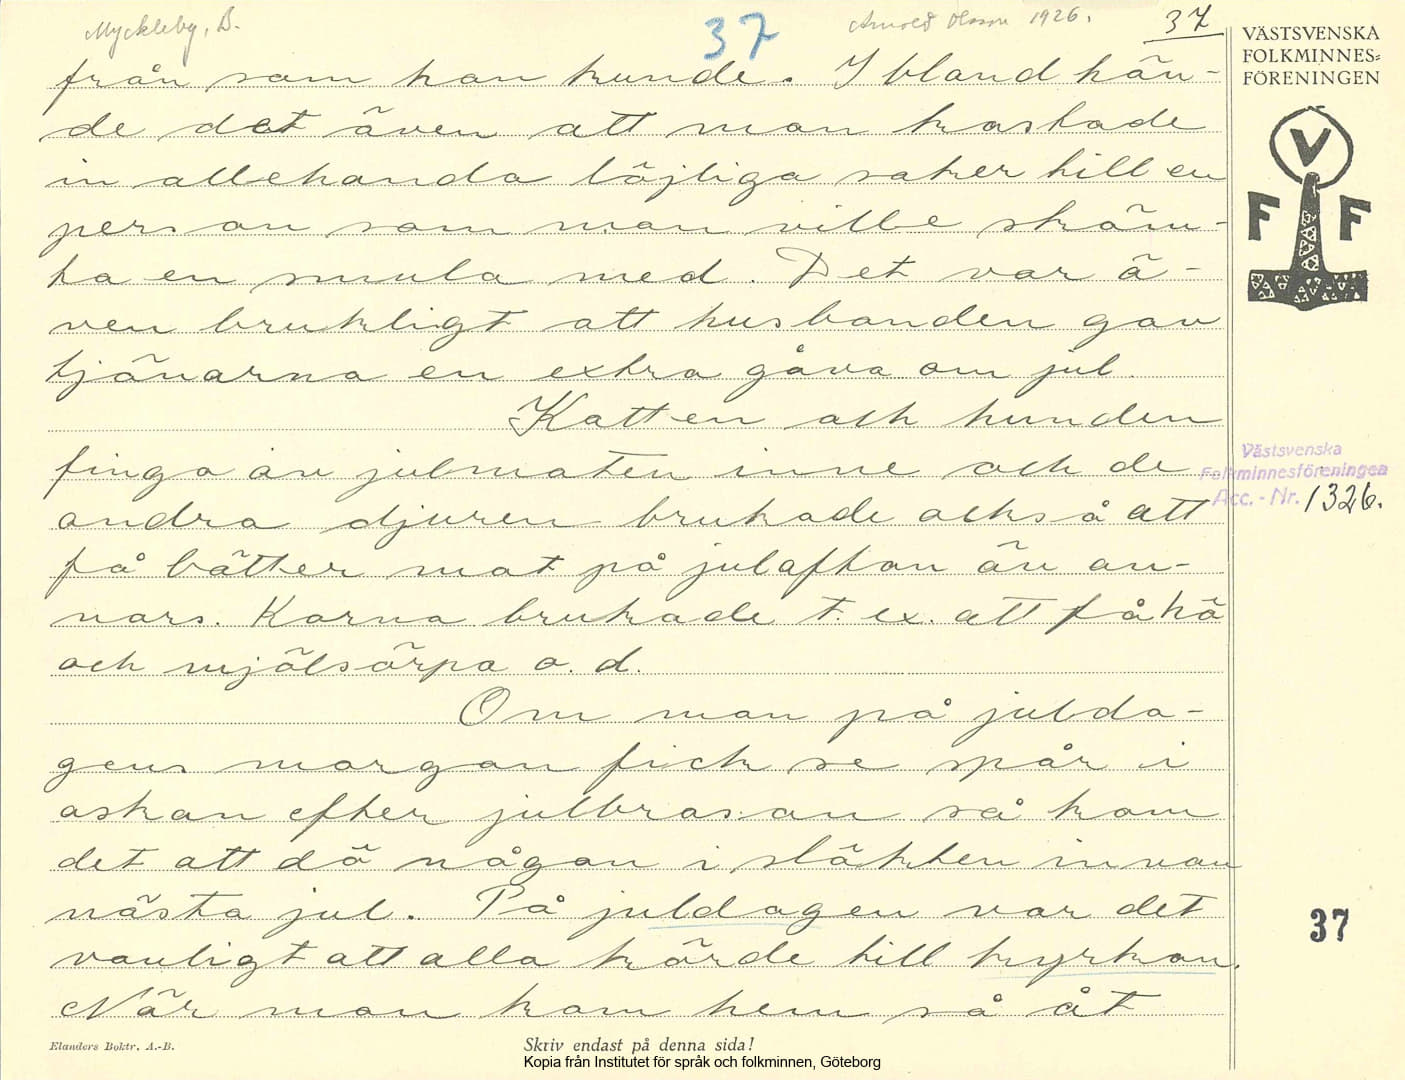 Myckleby, B.
37
Arnold Olsson 1926.
37
från som han kunde. Ibland hän-
de det även att man kastade
in allehanda löjliga saker till en
person som man ville skäm-
ta en smula med. Det var ä-
ven brukligt att husbonden gav
tjänarna en extra gåva om jul.
Katten och hunden
finga av julmaten inne och de
andra djuren brukade också att
få bätter mat på julaftan än an-
nars. Korna brukade t. ex. att få hö
och mjölsörpa o. d.
Om man på julda-
gens morgon fick se spår i
askan efter julbrasan så kom
det att dö någon i släkten innan
nästa jul. På juldagen var det
vanligt att alla körde till kyrkan.
När man kom hem så åt
VÄSTSVENSKA
FOLKMINNES-
FÖRENINGEN
V
F F
Västsvenska
Folkminnesföreningen
Acc.-Nr. 1326.
37
Elanders Boktr. A.-B.
Skriv endast på denna sida!
Kopia från Institutet för språk och folkminnen, Göteborg